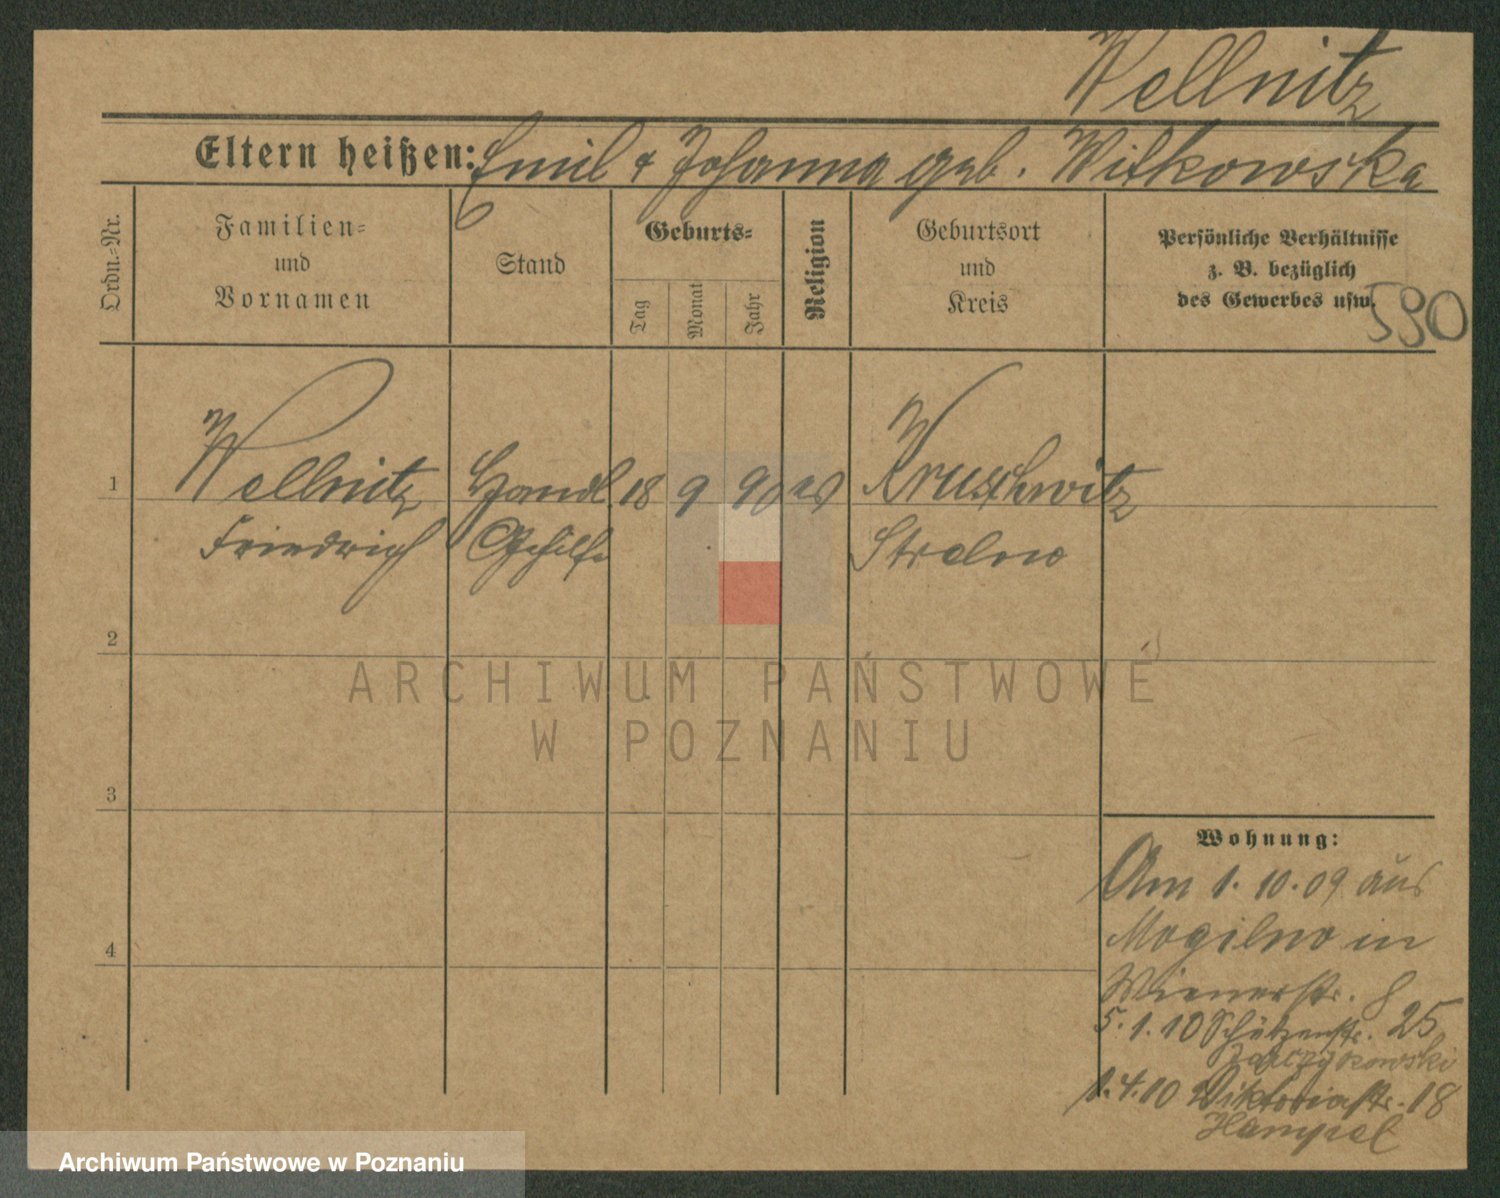 Wellnitz
Eltern heißen: Emil & Johanna geb. Witkowska
Ordn.=Nr.
Familien=
und
Vornamen
Stand
Geburts=
Tag
Monat
Jahr
Religion
Geburtsort
und
Kreis
Persönliche Verhältnisse
z. B. bezüglich
des Gewerbes usw.
590
1 Wellnitz Handl. 18 9 90 ev Kruschwitz
Friedrich Gehilfe Strelno
2
3
4
ARCHIWUM PAŃSTWOWE
W POZNANIU
Wohnung:
Am 1. 10. 09 aus
Mogilno in
Wienerstr. 8
5. 1. 10 Schützenstr. 25
1. 4. 10 Viktoriastr. 18
Hampel
Archiwum Państwowe w Poznaniu